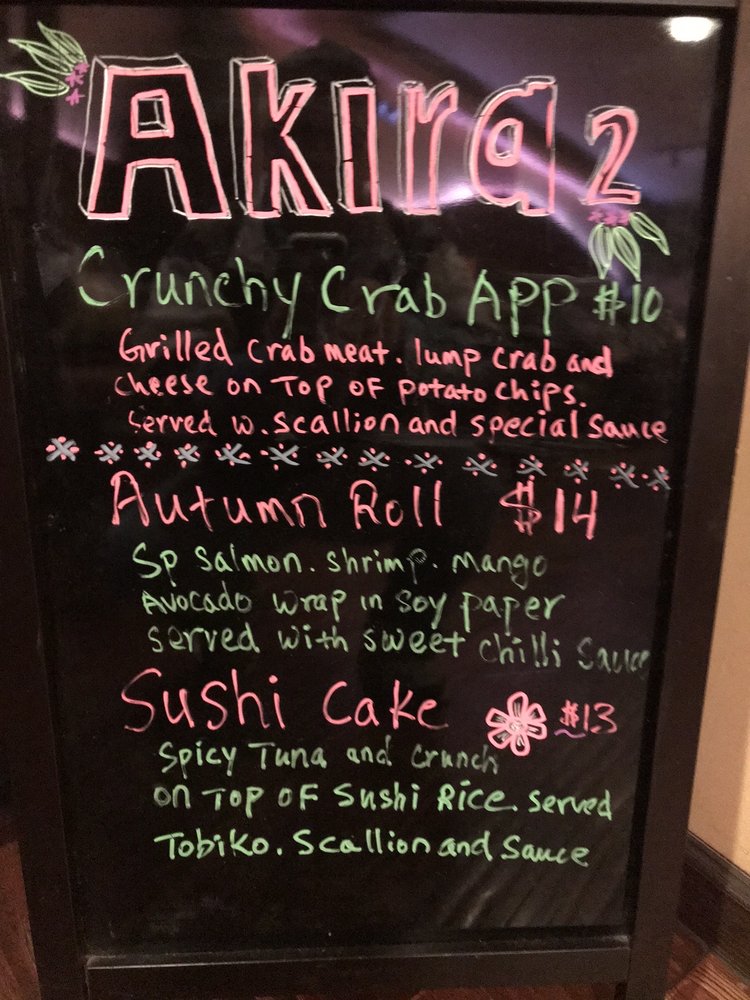 Akira 2
Crunchy Crab App $10
Grilled crab meat. lump crab and
cheese on Top of potato chips.
served w. scallion and special sauce
Autumn Roll $14
Sp salmon. shrimp. mango
Avocado wrap in soy paper
served with sweet chilli sauce
Sushi Cake $13
Spicy Tuna and crunch
on Top of Sushi Rice. served
Tobiko. Scallion and sauce